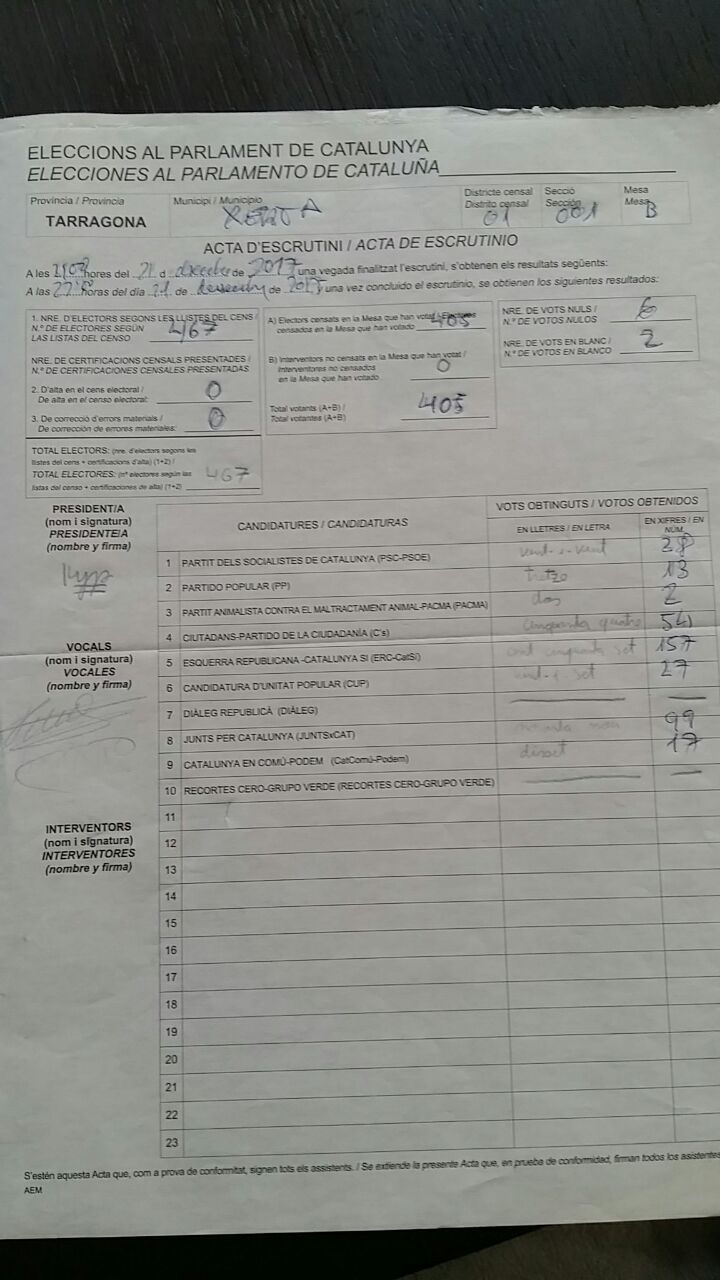 ELECCIONS AL PARLAMENT DE CATALUNYA
ELECCIONES AL PARLAMENTO DE CATALUÑA
Província / Provincia
TARRAGONA
Municipi / Municipio
XERTA
Districte censal
Distrito censal
01
Secció
Sección
001
Mesa
Mesa
B
ACTA D'ESCRUTINI / ACTA DE ESCRUTINIO
A les hores del 21 d de 2017 una vegada finalitzat l'escrutini, s'obtenen els resultats següents:
A las horas del día 21 de de 2017 y una vez concluido el escrutinio, se obtienen los siguientes resultados:
1. NRE. D'ELECTORS SEGONS LES LLISTES DEL CENS /
N.º DE ELECTORES SEGÚN
LAS LISTAS DEL CENSO
467
NRE. DE CERTIFICACIONS CENSALS PRESENTADES /
N.º DE CERTIFICACIONES CENSALES PRESENTADAS
2. D'alta en el cens electoral /
De alta en el censo electoral:
0
3. De correcció d'errors materials /
De corrección de errores materiales:
0
TOTAL ELECTORS: (nre. d'electors segons les
llistes del cens + certificacions d'alta) (1+2) /
TOTAL ELECTORES: (nº electores según las
listas del censo + certificaciones de alta) (1+2)
467
A) Electors censats en la Mesa que han votat / Electores
censados en la Mesa que han votado
405
B) Interventors no censats en la Mesa que han votat /
Interventores no censados
en la Mesa que han votado
0
Total votants (A+B) /
Total votantes (A+B)
405
NRE. DE VOTS NULS /
N.º DE VOTOS NULOS
6
NRE. DE VOTS EN BLANC /
N.º DE VOTOS EN BLANCO
2
PRESIDENT/A
(nom i signatura)
PRESIDENTE/A
(nombre y firma)
VOCALS
(nom i signatura)
VOCALES
(nombre y firma)
INTERVENTORS
(nom i signatura)
INTERVENTORES
(nombre y firma)
CANDIDATURES / CANDIDATURAS
VOTS OBTINGUTS / VOTOS OBTENIDOS
EN LLETRES / EN LETRA
EN XIFRES / EN NÚM.
1 PARTIT DELS SOCIALISTES DE CATALUNYA (PSC-PSOE) 28
2 PARTIDO POPULAR (PP) tretze 13
3 PARTIT ANIMALISTA CONTRA EL MALTRACTAMENT ANIMAL-PACMA (PACMA) dos 2
4 CIUTADANS-PARTIDO DE LA CIUDADANÍA (C's) cinquanta quatre 54
5 ESQUERRA REPUBLICANA -CATALUNYA SÍ (ERC-CatSí) cent cinquanta set 157
6 CANDIDATURA D'UNITAT POPULAR (CUP) vint-i-set 27
7 DIÀLEG REPUBLICÀ (DIÀLEG) — —
8 JUNTS PER CATALUNYA (JUNTSxCAT) noranta nou 99
9 CATALUNYA EN COMÚ-PODEM (CatComú-Podem) disset 17
10 RECORTES CERO-GRUPO VERDE (RECORTES CERO-GRUPO VERDE) — —
11
12
13
14
15
16
17
18
19
20
21
22
23
S'estén aquesta Acta que, com a prova de conformitat, signen tots els assistents. / Se extiende la presente Acta que, en prueba de conformidad, firman todos los asistentes
AEM